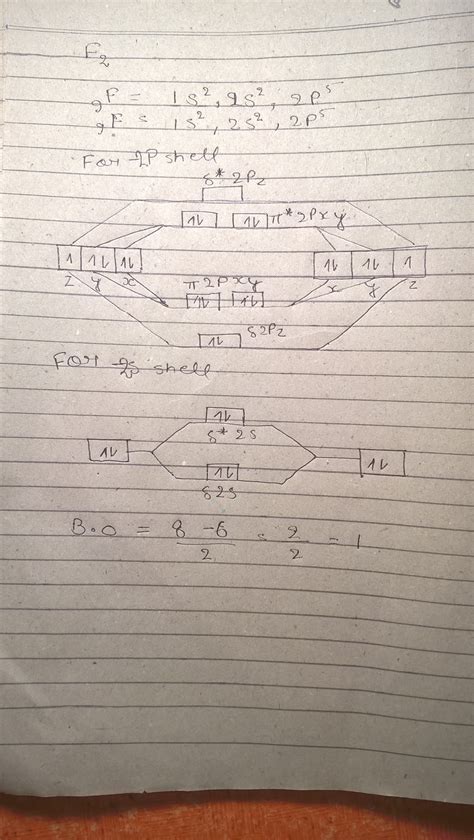 F2
9F = 1s², 2s², 2p⁵
9F = 1s², 2s², 2p⁵
For 2P shell
δ* 2Pz
1L 1L π* 2Px y
1 1L 1L 1L 1L 1
z y x x y z
π 2P xy
1L 1L
δ2Pz
1L
For 2s shell
1L
δ* 2s
1L 1L
1L
δ2s
B.O = 8 - 6 = 2 = 1
2 2